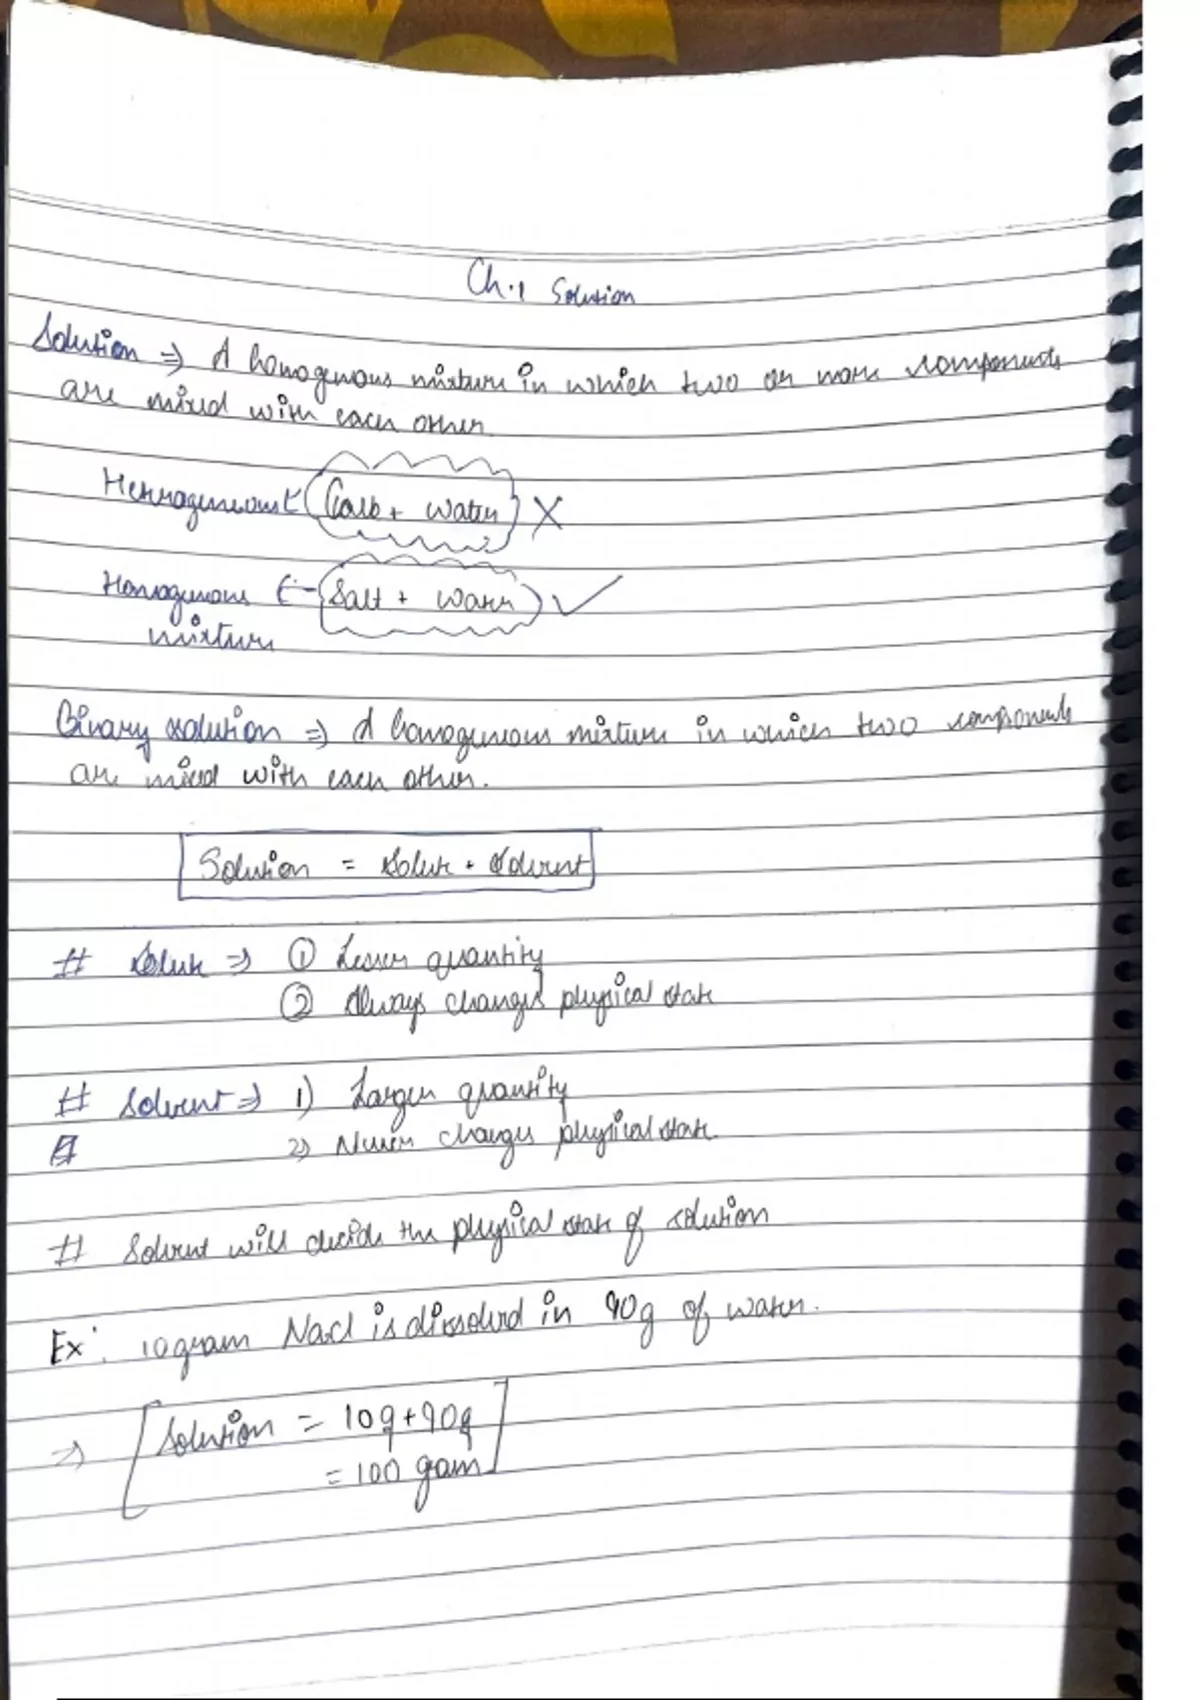 Ch.1 Solution
Solution ⇒ A homogenous mixture in which two or more components
are mixed with each other
Heterogeneous ← + Water X
Homogenous ← Salt + Water ✓
mixture
Binary solution ⇒ A homogeneous mixture in which two components
are mixed with each other.
Solution = Solute + Solvent
# Solute ⇒ ① Lesser quantity
② Always changes physical state
# Solvent ⇒ 1) Larger quantity
2) Never changes physical state
# Solvent will decide the physical state of solution
Ex: 10gram NaCl is dissolved in 90g of water.
⇒ Solution = 10g+90g
= 100 gam